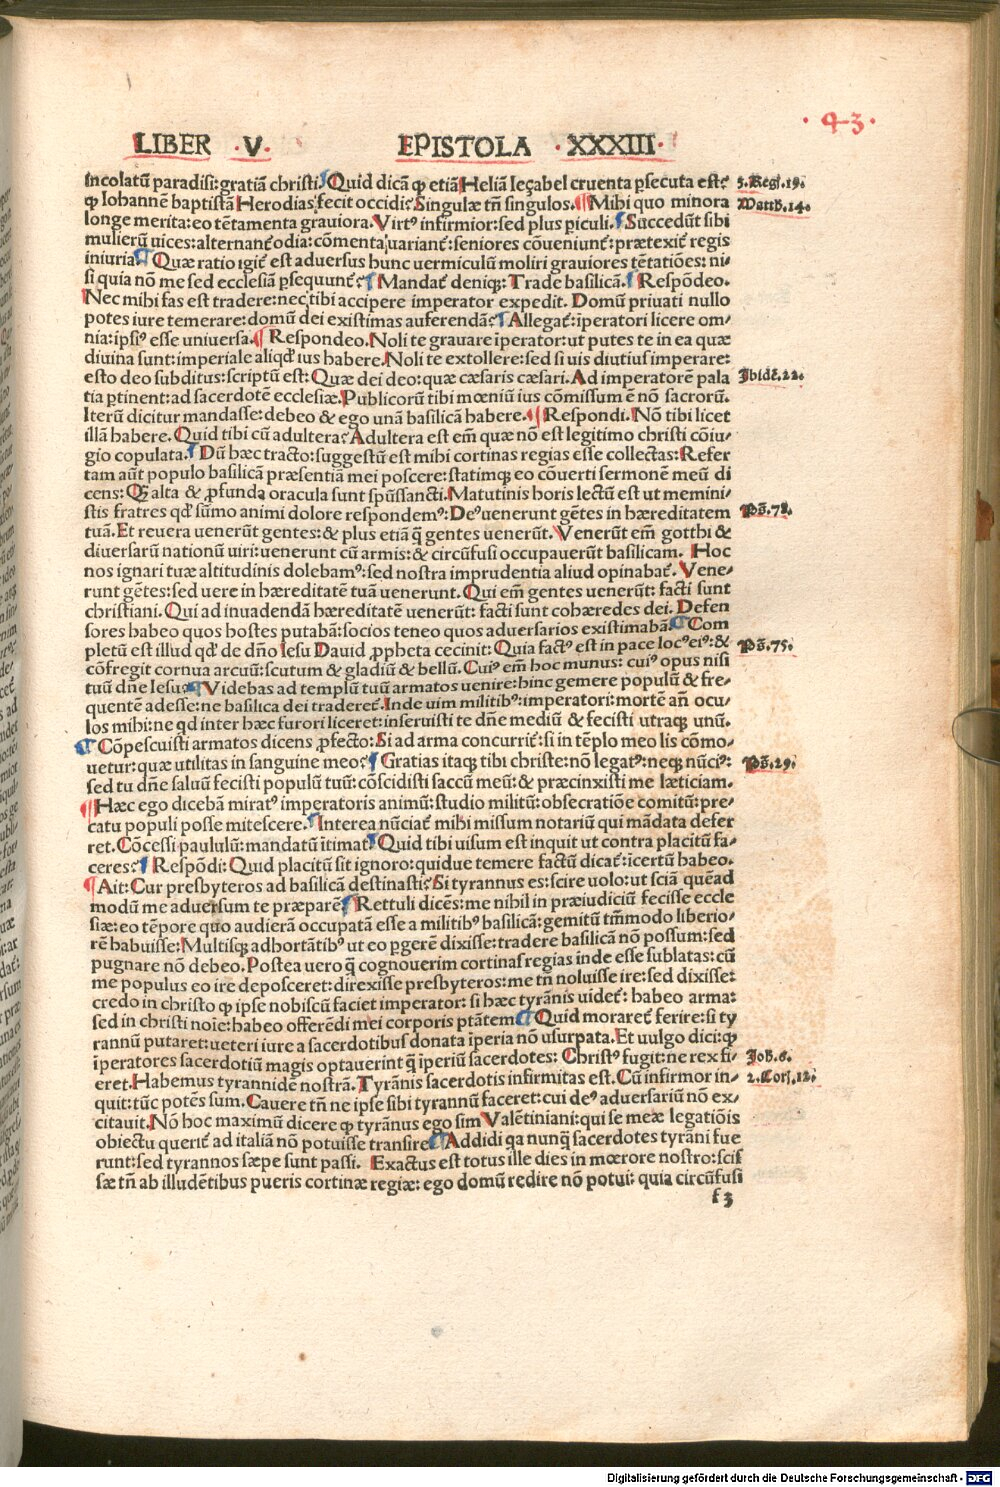 · 43 ·
LIBER · V · EPISTOLA · XXXIII ·
incolatū paradisi:gratiā christi. Quid dicā ꝙ etiā Heliā Ieçabel cruenta ꝑsecuta est: 3. Reg. 19.
ꝙ Iohannē baptistā Herodias fecit occidi: Singulæ tñ singulos. Mihi quo minora Matth. 14.
longe merita:eo tētamenta grauiora. Virtꝰ infirmior:sed plus piculi. Succedūt sibi
mulierū uices:alternanť odia:cōmenta uarianť:seniores cōueniunť:prætexiť regis
iniuria. Quæ ratio igiť est adversus hunc vermiculū moliri grauiores tētatiōes: ni/
si quia nō me sed ecclesiā ꝑsequunť: Mandať deniqꝫ: Trade basilicā. Respōdeo.
Nec mihi fas est tradere:nec tibi accipere imperator expedit. Domū priuati nullo
potes iure temerare:domū dei existimas auferendā: Allegať:īperatori licere om/
nia:ipsiꝰ esse uniuersa. Respondeo. Noli te grauare īperator:ut putes te in ea quæ
diuina sunt:imperiale aliqď ius habere. Noli te extollere:sed si vis diutius imperare:
esto deo subditus:scriptū est: Quæ dei deo:quæ cæsaris cæsari. Ad imperatorē pala Ibidē. 22.
tia ꝑtinent:ad sacerdotē ecclesiæ. Publicorū tibi mœniū ius cōmissum ē nō sacrorū.
Iterū dicitur mandasse:debeo & ego unā basilicā habere. Respondi. Nō tibi licet
illā habere. Quid tibi cū adultera: Adultera est em̄ quæ nō est legitimo christi cōiu/
gio copulata. Dū hæc tracto:suggestū est mihi cortinas regias esse collectas: Refer
tam aūt populo basilicā præsentiā mei poscere:statimqꝫ eo cōuerti sermonē meū di
cens: Qꝫ alta & ꝓfunda oracula sunt spūssancti. Matutinis horis lectū est ut memini/
stis fratres qď sūmo animi dolore respondemꝰ: Deꝰ uenerunt gētes in hæreditatem Ps. 78.
tuā. Et reuera uenerūt gentes:& plus etiā q̃ gentes uenerūt. Venerūt em̄ gotthi &
diuersarū nationū uiri:uenerunt cū armis:& circūfusi occupauerūt basilicam. Hoc
nos ignari tuæ altitudinis dolebamꝰ:sed nostra imprudentia aliud opinabať. Vene/
runt gētes:sed uere in hæreditatē tuā uenerunt. Qui em̄ gentes uenerūt: facti sunt
christiani. Qui ad inuadendā hæreditatē uenerūt: facti sunt cohæredes dei. Defen
sores habeo quos hostes putabā:socios teneo quos aduersarios existimabā. Com
pletū est illud qď de dño Iesu Dauid ꝓpheta cecinit: Quia factꝰ est in pace locꝰ eiꝰ:& Ps. 75.
cōfregit cornua arcuū:scutum & gladiū & bellū. Cuiꝰ em̄ hoc munus: cuiꝰ opus nisi
tuū dñe Iesu: Videbas ad templū tuū armatos uenire:hinc gemere populū & fre/
quentē adesse:ne basilica dei tradereť. Inde uim militibꝰ:imperatori:mortē añ ocu/
los mihi:ne qd inter hæc furori liceret:inseruisti te dñe mediū & fecisti utraqꝫ unū.
Cōpescuisti armatos dicens ꝓfecto: Si ad arma concurriť:si in tēplo meo lis cōmo/
uetur:quæ utilitas in sanguine meo: Gratias itaqꝫ tibi christe:nō legatꝰ:neqꝫ nūciꝰ: Ps. 29.
sed tu dñe saluū fecisti populū tuū:cōscidisti saccū meū:& præcinxisti me lætitiam.
Hæc ego dicebā miratꝰ imperatoris animū:studio militū:obsecratiōe comitū:pre/
catu populi posse mitescere. Interea nūciať mihi missum notariū qui mādata defer
ret. Cōcessi paululū:mandatū ītimať. Quid tibi uisum est inquit ut contra placitū fa/
ceres: Respōdi: Quid placitū sit ignoro:quidue temere factū dicať:icertū habeo.
Ait: Cur presbyteros ad basilicā destinasti: Si tyrannus es:scire uolo:ut sciā quēad
modū me aduersum te præparē. Rettuli dicēs:me nihil in præiudiciū fecisse eccle
siæ:eo tēpore quo audierā occupatā esse a militibꝰ basilicā:gemitū tm̄modo liberio/
rē habuisse: Multisqꝫ adhortātibꝰ ut eo ꝑgerē dixisse:tradere basilicā nō possum:sed
pugnare nō debeo. Postea uero q̃ cognouerim cortinas regias inde esse sublatas:cū
me populus eo ire deposceret:direxisse presbyteros:me tñ noluisse ire:sed dixisse:
credo in christo ꝙ ipse nobiscū faciet imperator: si hæc tyrānis uideť: habeo arma:
sed in christi noīe:habeo offerēdi mei corporis ptātem. Quid moraret ferire:si ty
rannū putaret:ueteri iure a sacerdotibus donata īperia nō usurpata. Et uulgo dici:ꝙ
īperatores sacerdotiū magis optauerint q̃ īperiū sacerdotes: Christꝰ fugit:ne rex fi/ Ioh. 6.
eret. Habemus tyrannidē nostrā. Tyrānis sacerdotis infirmitas est. Cū infirmor in/ 2. Cor. 12.
quit:tūc potēs sum. Cauere tñ ne ipse sibi tyrannū faceret:cui deꝰ aduersariū nō ex/
citauit. Nō hoc maximū dicere ꝙ tyrānus ego sim Valētiniani:qui se meæ legatiōis
obiectu queriť ad italiā nō potuisse transire. Addidi qa nunq̃ sacerdotes tyrāni fue
runt:sed tyrannos sæpe sunt passi. Exactus est totus ille dies in mœrore nostro:scis
sæ tñ ab illudētibus pueris cortinæ regiæ: ego domū redire nō potui: quia circūfusi
f 3
Digitalisierung gefördert durch die Deutsche Forschungsgemeinschaft - DFG